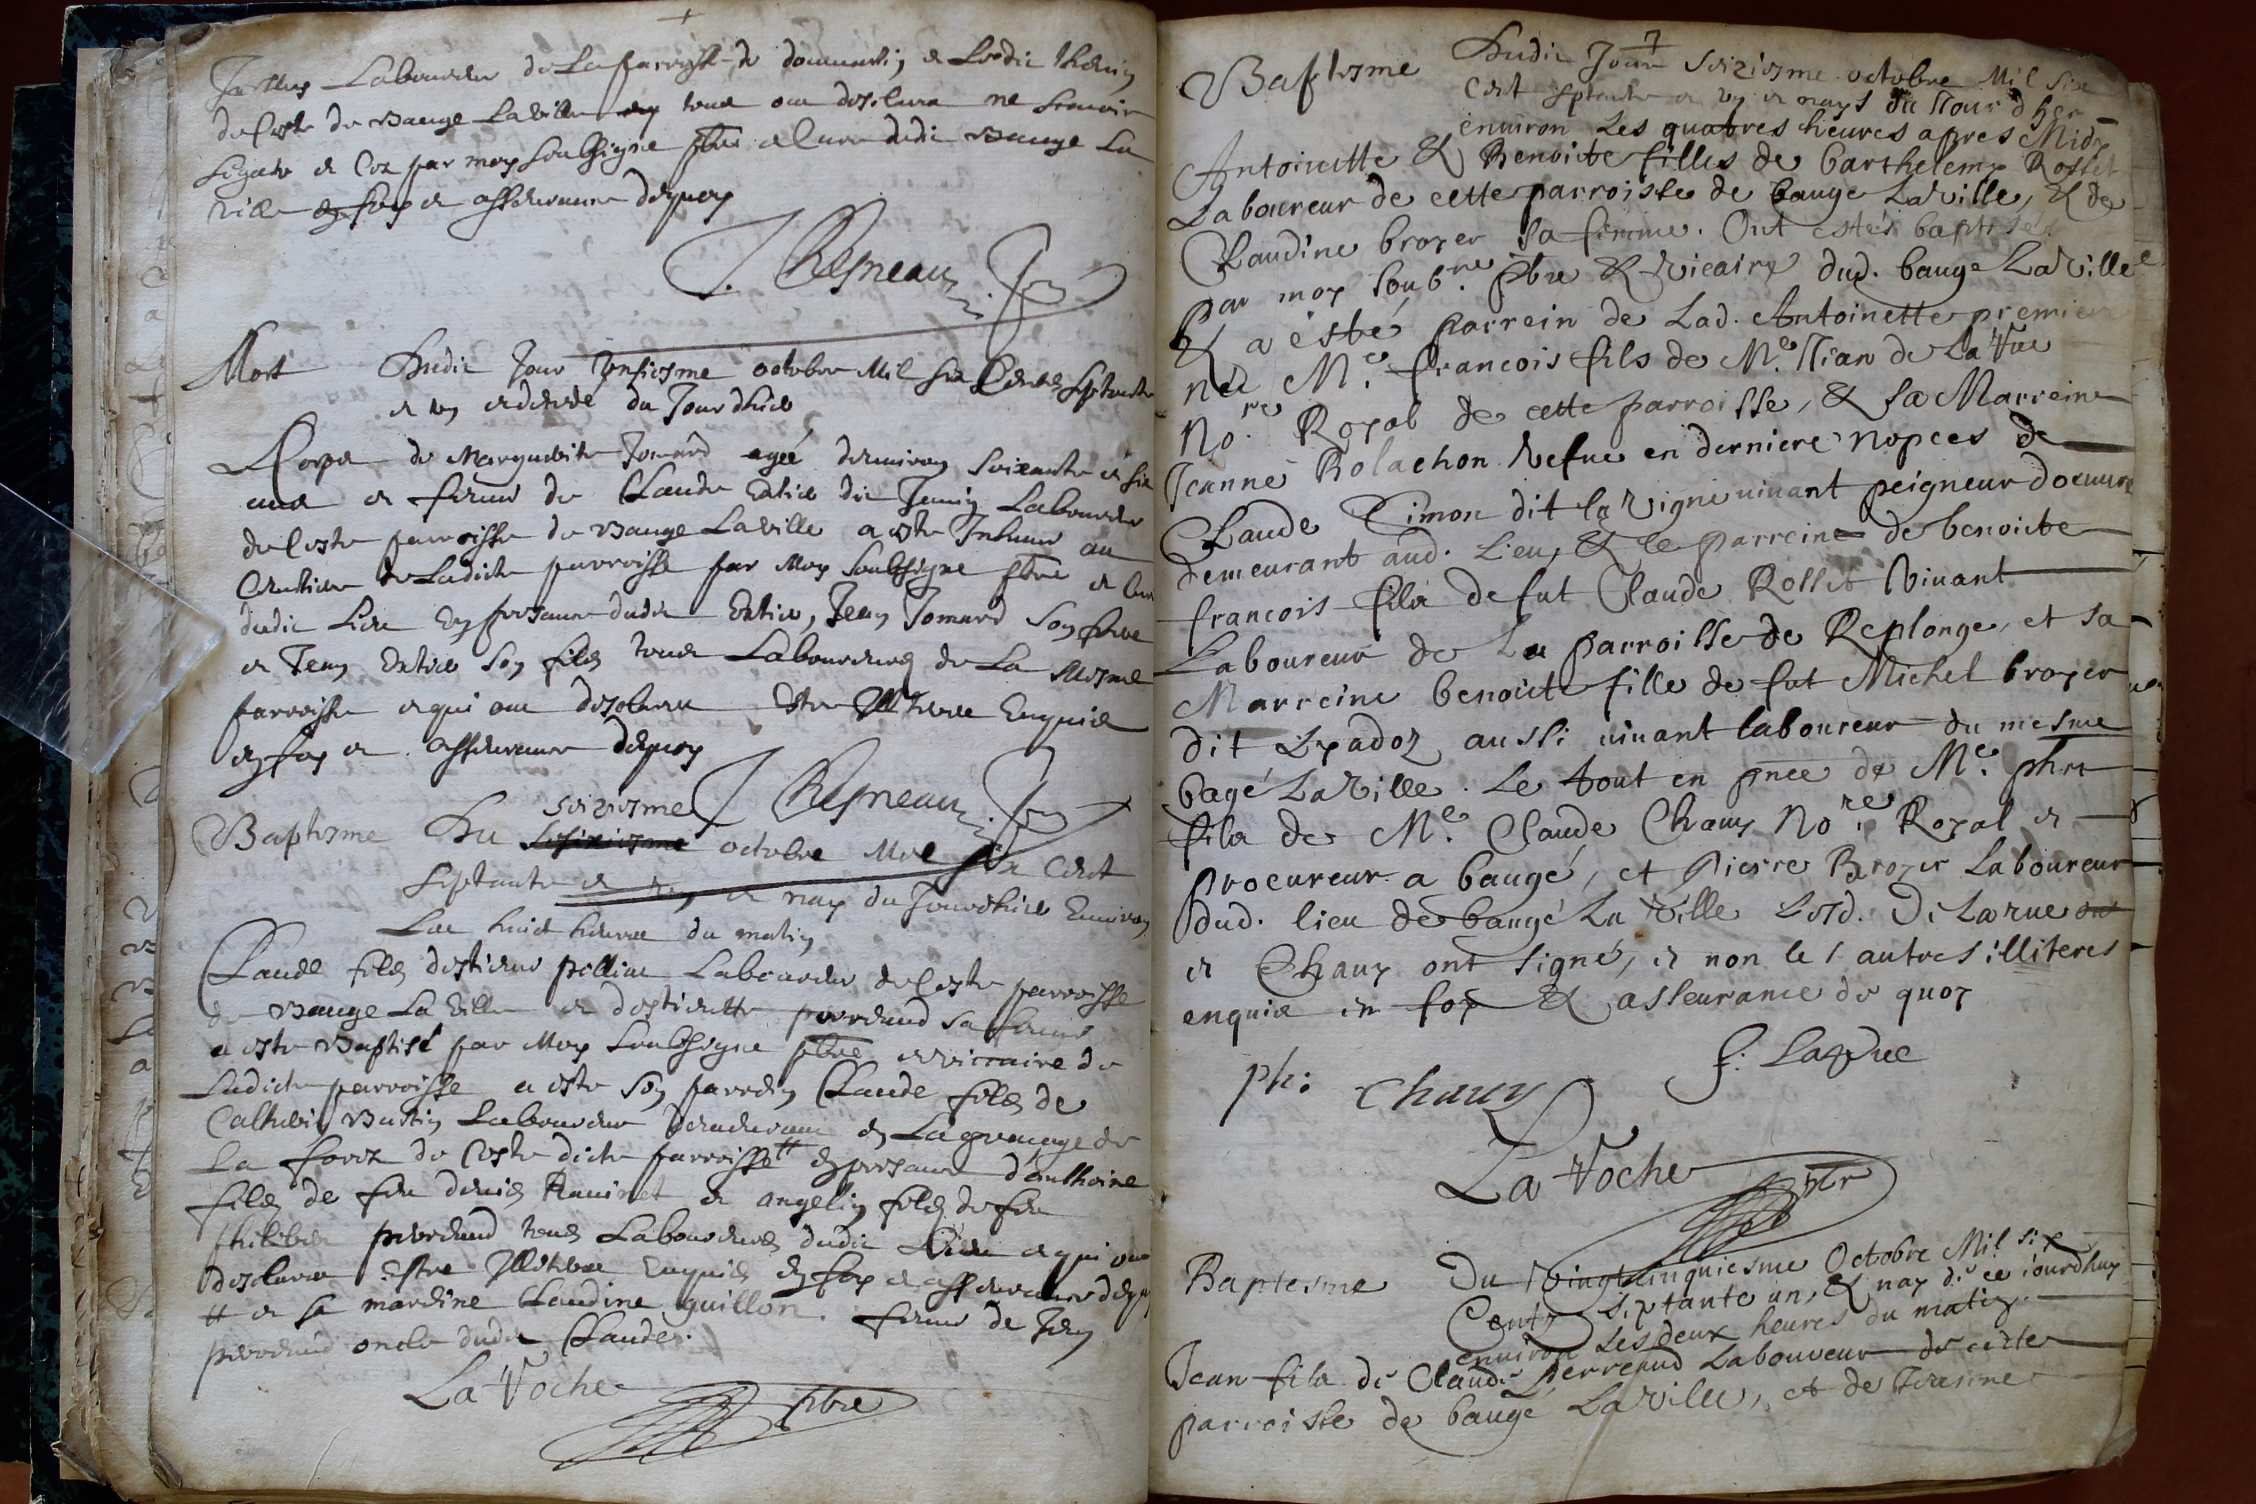 Laboureur de La parroisse de dommartin et Lesdic
de Ceste de Bauge Laville tous ont desclare ne scavoir
signer et Ce par moy Soubsigne pbre et Cure dudic Bauge La
ville en foy et asseurance dequoy
J. Chesneau
Mort Dudic Jour Unsiesme octobre Mil Six Cents Septante
et un enterré du Jourdhuy
Corps de Marguerite Jomard agée denviron Soixante et six
ans et femme de Claude dit Laboureur
de Ceste parroisse de Bauge Laville a este Inhume au
Cemetiere de Ladicte parroisse par Moy Soubsigne pbre et Cure
dudic Lieu En presance dudit Jean Jomard Son frere
et Jean Son filz tous Laboureurs de La Mesme
parroisse et qui ont desclare Estre Illiteres Enquis
en foy et asseurance dequoy
J. Chesneau
Baptesme Du seiziesme octobre Mil six Cent
Septante et un et nay du Jourdhuy Environ
Les huict heures du matin
Claude filz destienne pelliou Laboureur de Ceste parroisse
de Bauge La Ville et destiennette perreaud sa femme
a este Baptisé par Moy Soubsigne pbre et viccaire de
Ladicte parroisse a este Son parrein Claude filz de
Laboureur demeurant en La grange de
La forez de Ceste dicte parroisse # en presance danthoine
filz de feu denis Ravinet et angelin filz de feu
philibert perreaud tous Laboureurs dudic Lieu et qui ont
desclare Estre Illiteres Enquis en foy et asseurance dequoy
# et sa mareine Claudine guillon. femme de Jean
perreaud oncle dudit Claude.
La Roche pbre
7
Baptesme Dudic Jour Seiziesme octobre Mil six
Cent Septante et un et nays du Jour dher
environ Les quatres heures apres Midy
Antoinette & Benoicte filles de barthelemy Rollet
Laboureur de cette parroisse de bauge Laville, & de
Claudine broyer sa femme. Ont estés baptisées
par moy soub.né pbre & vicaire dud. bauge LaVille
& a esté parrein de Lad. Antoinette premiere
née Me. francois fils de Me. Jean de LaRue
No.re Royal de cette parroisse, & sa Marreine
Jeanne Rolachon Vefue en derniere nopces de
Claude Timon dit la Vigne vivant peigneur doeuvre
demeurant aud. Lieu, & le parrein de benoicte
francois fils de fut Claude Rollet Vivant
Laboureur de La parroisse de Replonge, et sa
Marreine benoicte fille de fut Michel broyer
dit Lyadoz aussi vivant laboureur du mesme
bagé LaVille. Le tout en pnce de Me. phi
fils de Me. Claude Chaux No.re Royal et
procureur a baugé, et Pierre Broyer Laboureur
dud. lieu de baugé La Ville Lesd. De Larue
et Chaux ont signé, et non les autres illiteres
enquis en foy & asseurance de quoy
ph: Chaux f. LaRue
La Roche pbr
Baptesme Du Vingtcinquiesme Octobre Mil six
Cents septante un, & nay de ce iourdhuy
environ Les deux heures du matin.
Jean fils de Claude perreaud Laboureur de cette
parroisse de baugé LaVille, et de